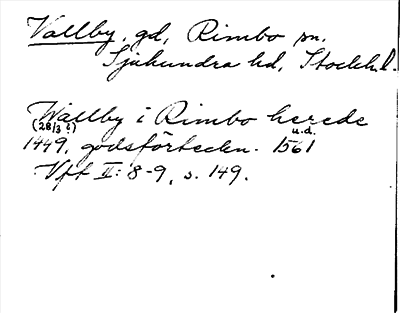 Vallby, gd, Rimbo sn.
Sjuhundra hd, Stockh. l.
Wallby i Rimbo herede
(28/3 ?) u.d.
1449, godsförteckn. 1561
Vft II: 8-9, s. 149.